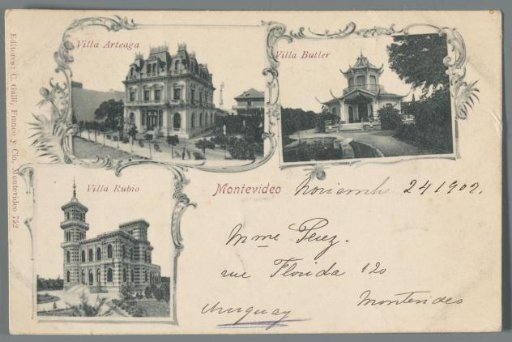 Villa Arteaga
Villa Butler
Villa Rubio
Editores: C. Galli, Franco y Cia, Montevideo 752
Montevideo Novembr 24 1902.
Mme Perez.
rue Florida 120
Montevideo
Uruguay